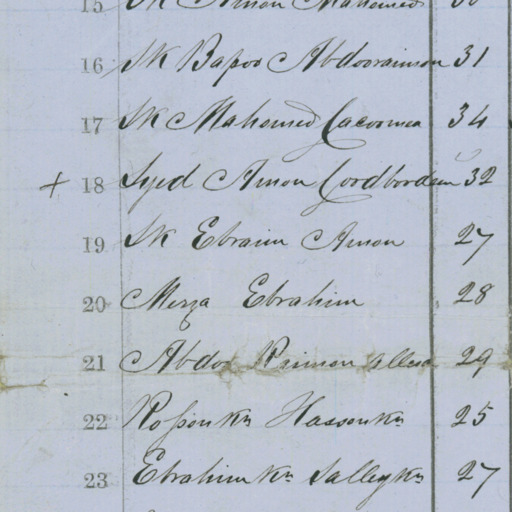 15 SK Amon Mahomed 30
16 SK Bapoo Abdooraimon 31
17 SK Mahomed Cacoomea 34
+ 18 Syed Amon Cordbordeen 32
19 SK Ebraim Amon 27
20 Mirza Ebrahim 28
21 Abdoo Raimon 29
22 Hassonkn 25
23 Ebrahimkn Salleykn 27